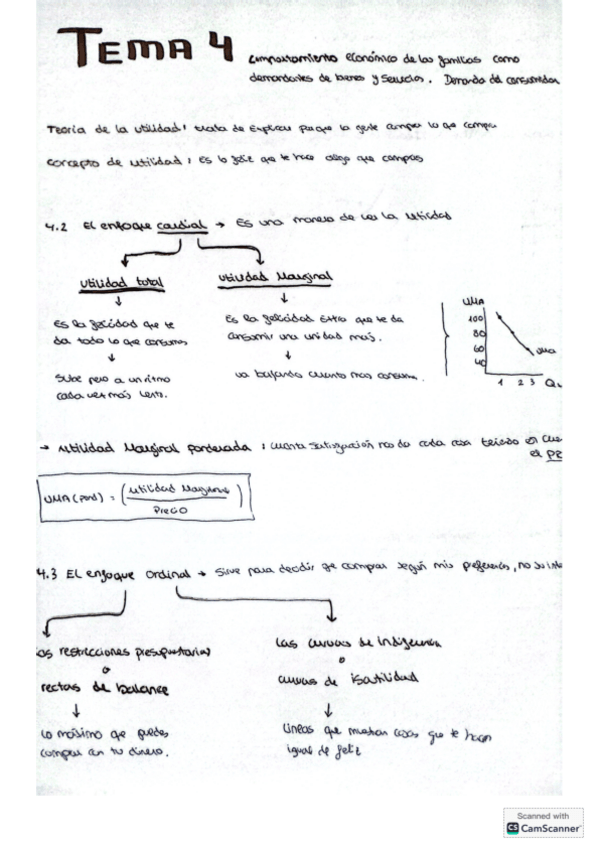 TEMA 4 comportamiento económico de las familias como
demandantes de bienes y servicios. Demanda del consumidor
Teoría de la utilidad: trata de explicar porque la gente compra lo que compra
concepto de utilidad: Es lo feliz que te hace algo que compras
4.2 El enfoque cardinal → Es una manera de ver la utilidad
utilidad total
Es la felicidad que te
da todo lo que consumes
sube pero a un ritmo
cada vez más lento.
utilidad Marginal
Es la felicidad extra que te da
consumir una unidad más.
va bajando cuanto mas consumes.
UMA
100
80
60
40
UMA
1 2 3 Q
→ utilidad Marginal ponderada: cuanta satisfacción nos da cada cosa teniendo en
el
UMA (pond) = (utilidad Marginal / PRECIO)
4.3 El enfoque ordinal → sirve para decidir que comprar según mis preferencias, no
as restricciones presupuestarias
o
rectas de balance
lo máximo que puedes
comprar con tu dinero.
las curvas de indiferencia
o
curvas de isutilidad
Lineas que muestran cosas que te hacen
igual de feliz
Scanned with
CS CamScanner